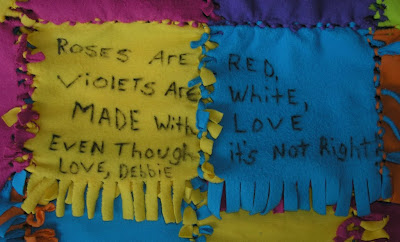 ROSES ARE RED,
VIOLETS ARE WHITE,
MADE With LOVE
EVEN Though it's Not Right!
LOVE, Debbie